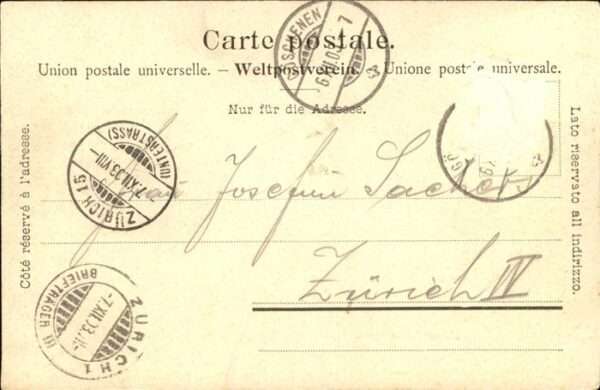 Carte postale.
Union postale universelle. – Weltpostverein. – Unione postale universale.
Nur für die Adresse.
Côté réservé à l'adresse.
Lato riservato all indirizzo.
GÖSCHENEN
7
ZÜRICH 15
-7.XII.03.VIII-
(UNTERSTRASS)
Frau Josefin
Zürich IV
ZÜRICH 1
-7.XII.03.
BRIEFTRÄGER III